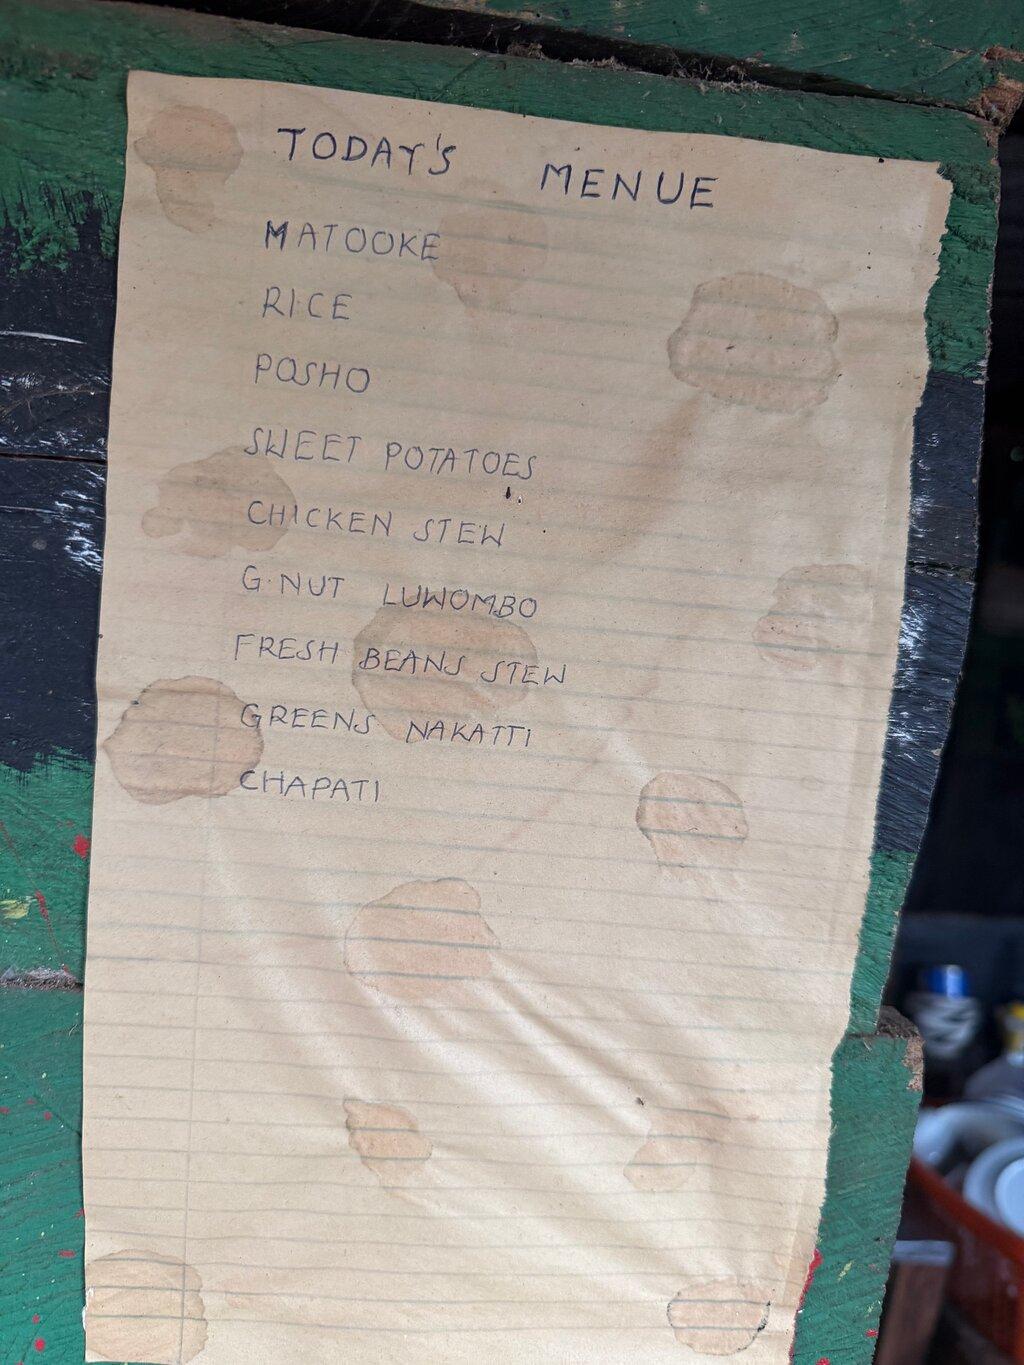 TODAY'S MENUE
MATOOKE
RICE
POSHO
SWEET POTATOES
CHICKEN STEW
G.NUT LUWOMBO
FRESH BEANS STEW
GREENS NAKATTI
CHAPATI